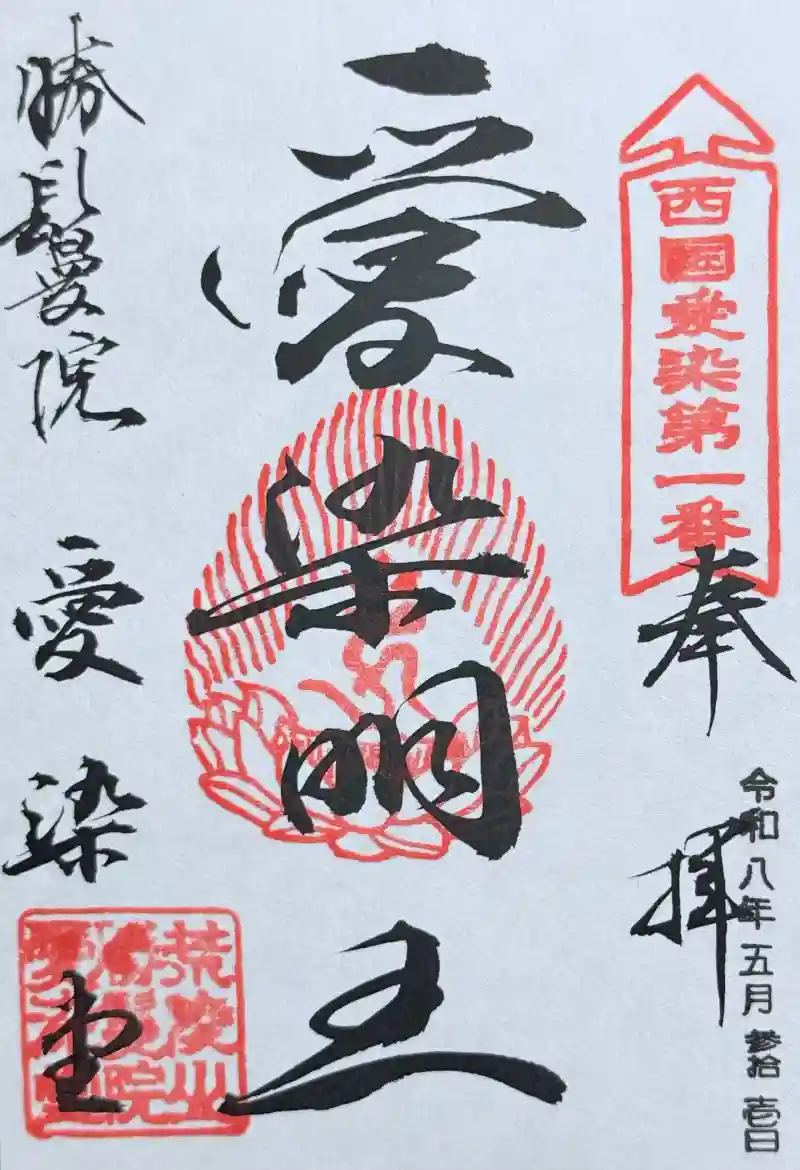 西國愛染第一番
奉拝
令和八年五月参拾壱日
愛染明王
勝鬘院
愛染堂
荒陵山
勝鬘院
愛染堂